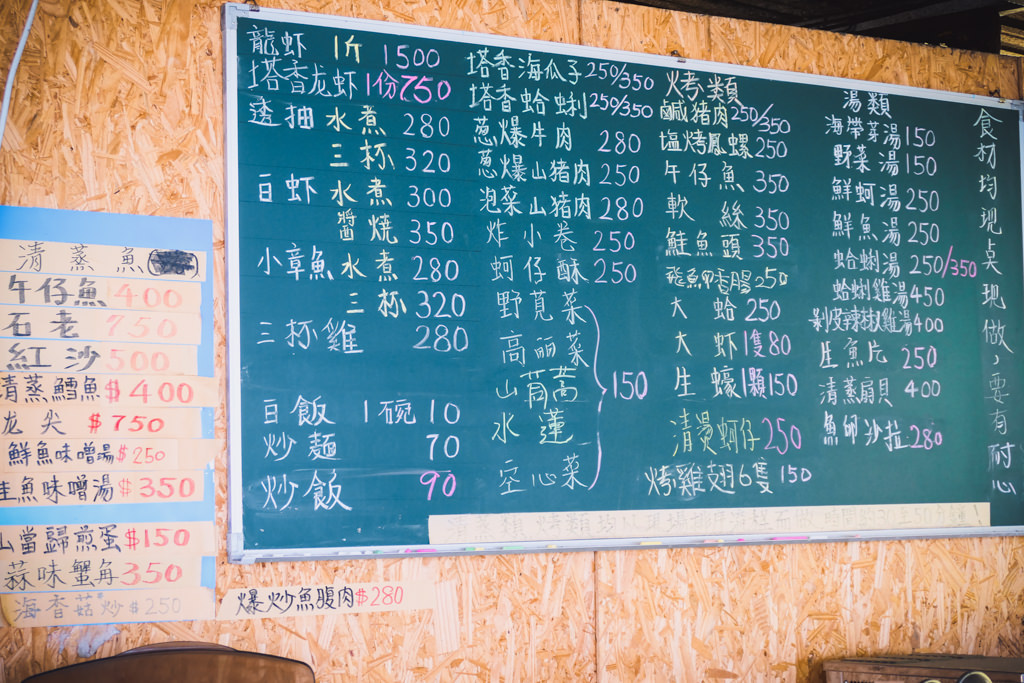 清蒸魚
午仔魚 400
石老 750
紅沙 500
清蒸鱈魚 $400
龙尖 $750
鮮魚味噌湯 $250
鮭魚味噌湯 $350
山當歸煎蛋 $150
蒜味蟹角 350
海香菇炒 $250
爆炒魚腹肉 $280
龍虾 1斤 1500
塔香龙虾 1份 750
透抽 水煮 280
三杯 320
白虾 水煮 300
醬燒 350
小章魚 水煮 280
三杯 320
三杯雞 280
白飯 1碗 10
炒麵 70
炒飯 90
塔香海瓜子 250/350
塔香蛤蜊 250/350
葱爆牛肉 280
葱爆山豬肉 250
泡菜山豬肉 280
炸小卷 250
蚵仔酥 250
野莧菜
高丽菜
山茼蒿
水蓮
空心菜
150
烤類
鹹豬肉 250/350
塩烤鳳螺 250
午仔魚 350
軟絲 350
鮭魚頭 350
飛魚卵香腸 250
大蛤 250
大虾 1隻 80
生蠔 1顆 150
清燙蚵仔 250
烤雞翅 6隻 150
湯類
海帶芽湯 150
野菜湯 150
鮮蚵湯 250
鮮魚湯 250
蛤蜊湯 250/350
蛤蜊雞湯 450
剝皮辣椒雞湯 400
生魚片 250
清蒸扇貝 400
魚卵沙拉 280
食材均现点现做，要有耐心